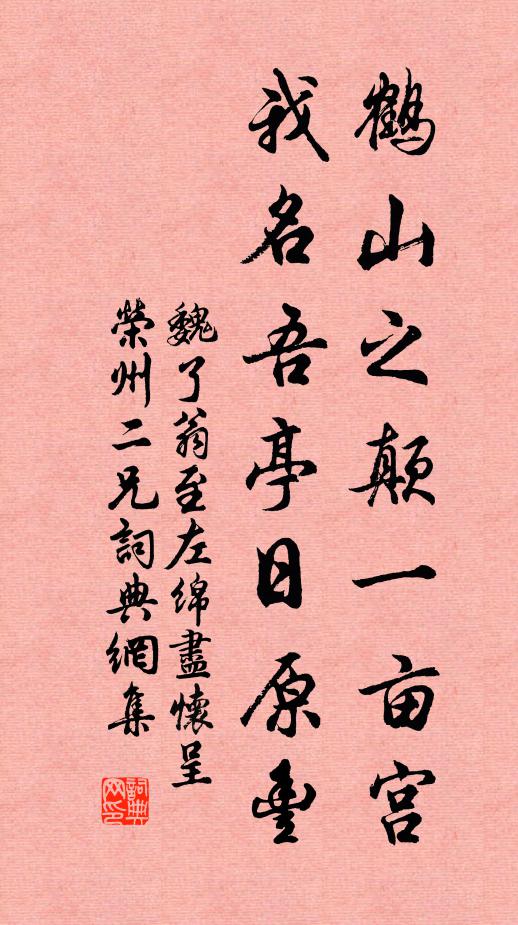 鶴山之顛一亩宫
我名吾亭日原豊
魏了翁至左绵盡懷呈
榮州二兄詞典網集
詞典网印